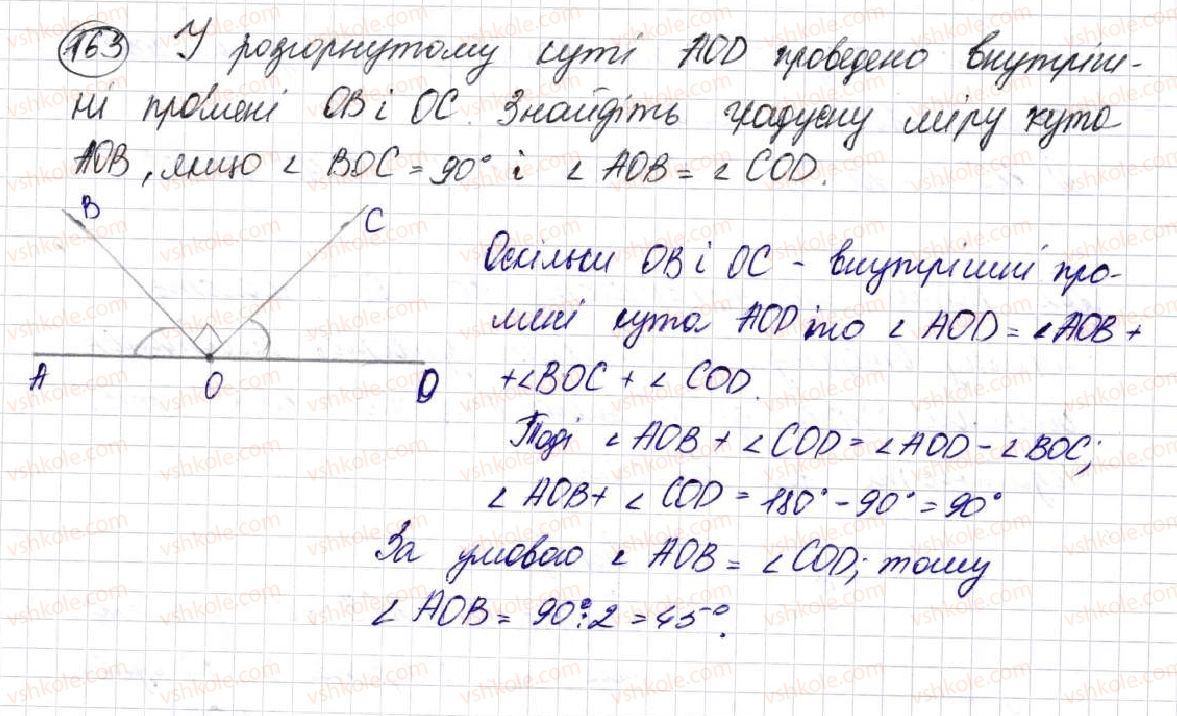 163 У розгорнутому куті AOD проведено внутріш-
ні промені OB і OC. Знайдіть градусну міру кута
AOB, якщо ∠ BOC = 90° і ∠ AOB = ∠ COD.
B C
A O D
Оскільки OB і OC - внутрішні про-
мені кута AOD то ∠ AOD = ∠AOB +
+∠BOC + ∠ COD.
Тоді ∠ AOB + ∠ COD = ∠ AOD - ∠ BOC;
∠ AOB + ∠ COD = 180° - 90° = 90°
За умовою ∠ AOB = ∠ COD; тому
∠ AOB = 90° : 2 = 45°.
vshkole.com